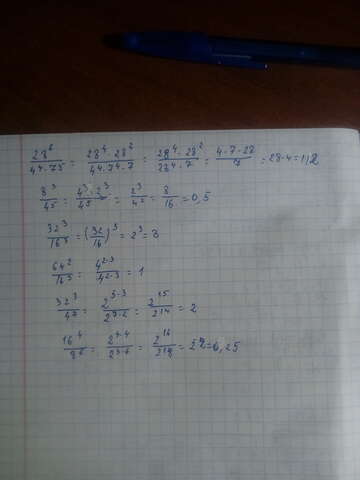 28⁶/4⁴·7⁵ = 28⁴·28²/4⁴·7⁴·7 = 28⁴·28²/28⁴·7 = 4·7·28/7 = 28·4=112
8³/4⁵ = 4³·2³/4⁵ = 2³/4² = 8/16 = 0,5
32³/16³ = (32/16)³ = 2³ = 8
64²/16³ = 4²·³/4²·³ = 1
32³/4⁷ = 2⁵·³/2⁷·² = 2¹⁵/2¹⁴ = 2
16⁴/8⁶ = 2⁴·⁴/2³·⁶ = 2¹⁶/2¹⁸ = 2²=0,25